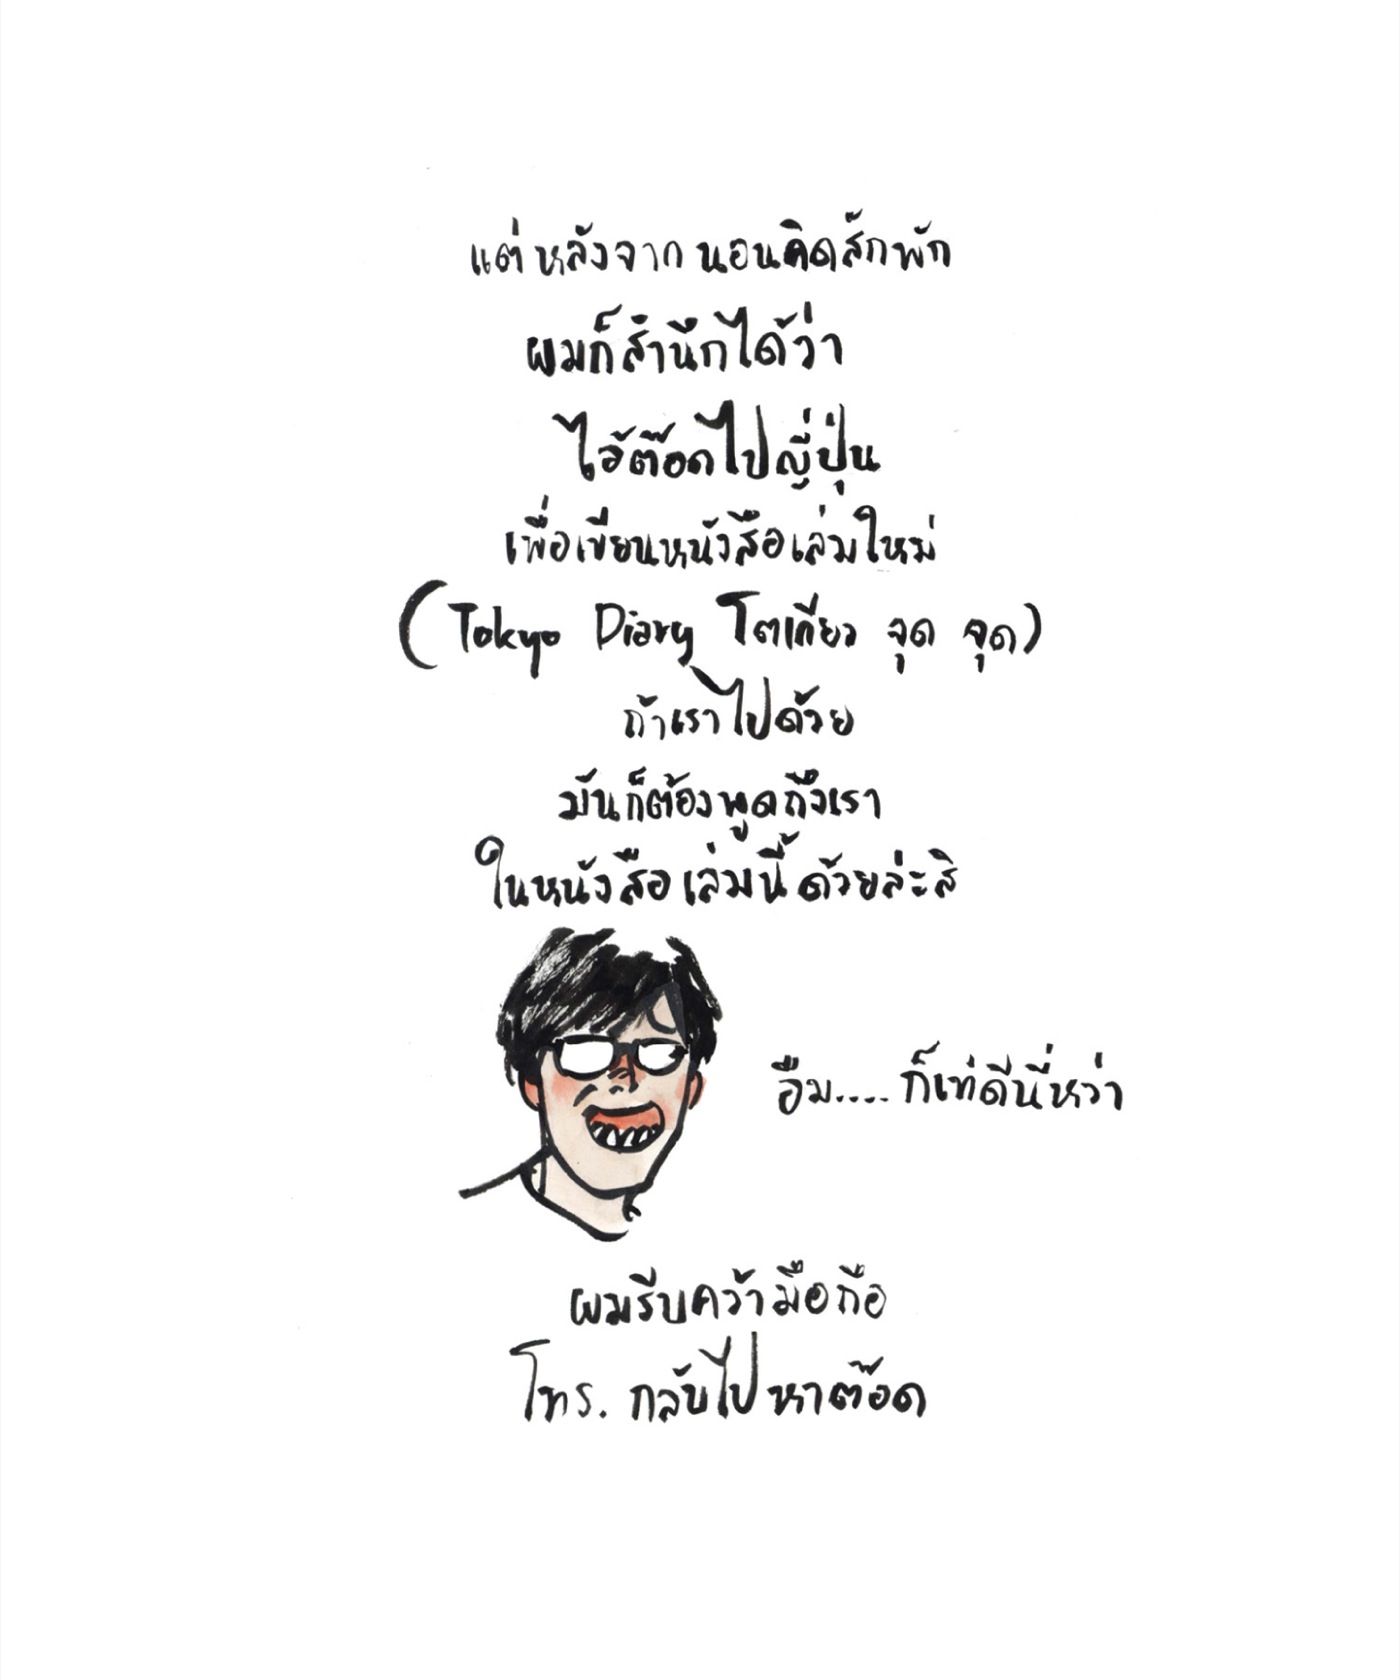 แต่หลังจากนอนคิดสักพัก
ผมก็สำนึกได้ว่า
ไอ้ต๊อดไปญี่ปุ่น
เพื่อเขียนหนังสือเล่มใหม่
(Tokyo Diary โตเกียว จุด จุด)
ถ้าเราไปด้วย
มันก็ต้องพูดถึงเรา
ในหนังสือเล่มนี้ด้วยล่ะสิ
อืม.... ก็เท่ดีนี่หว่า
ผมรีบคว้ามือถือ
โทร. กลับไปหาต๊อด